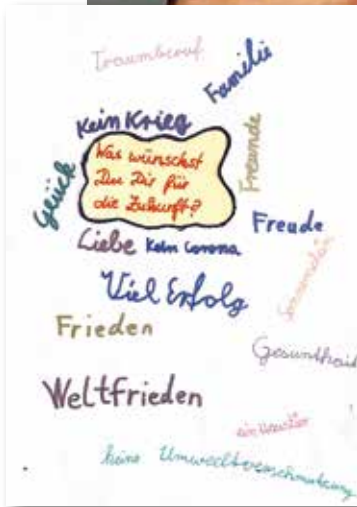 Traumberuf
Familie
Kein Krieg
Freunde
Was wünschst
Du Dir für
die Zukunft?
Glück
Freude
Liebe
Kein Corona
Sonnenschein
Viel Erfolg
Frieden
Gesuntheit
Weltfrieden
ein Haustier
keine Umweltverschmutzung